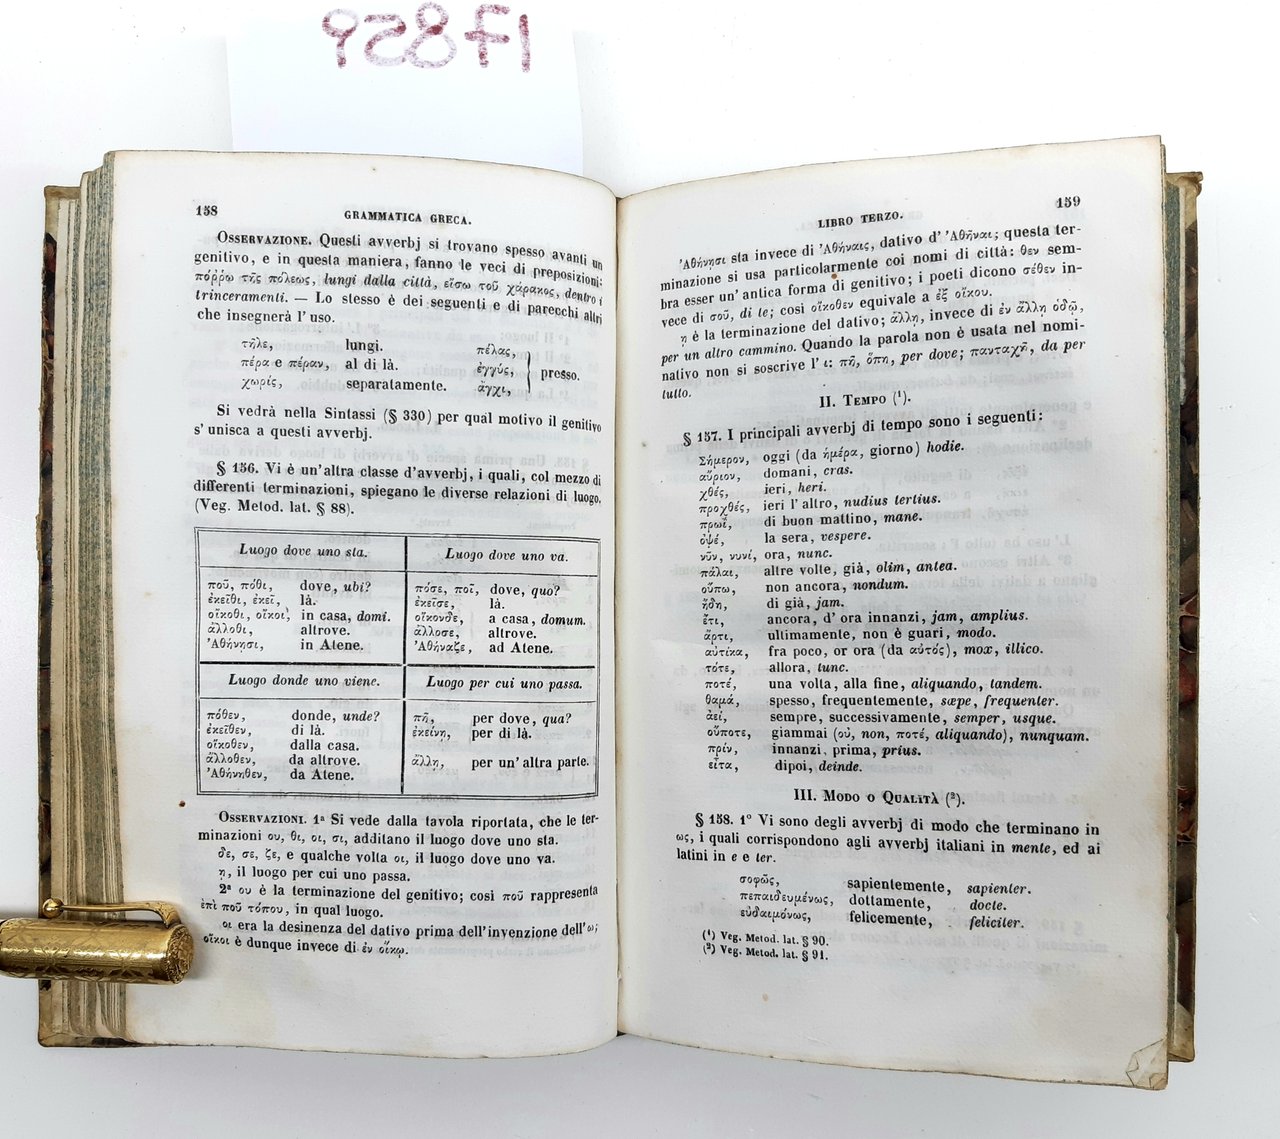 17859
158
GRAMMATICA GRECA.
OSSERVAZIONE. Questi avverbj si trovano spesso avanti un
genitivo, e in questa maniera, fanno le veci di preposizioni:
πόῤῥω τῆς πόλεως, lungi dalla città, εἴσω τοῦ χάρακος, dentro i
trinceramenti. — Lo stesso è dei seguenti e di parecchi altri
che insegnerà l'uso.
τῆλε, lungi. πέλας,
πέρα e πέραν, al di là. ἐγγύς, presso.
χωρίς, separatamente. ἄγχι,
Si vedrà nella Sintassi (§ 330) per qual motivo il genitivo
s'unisca a questi avverbj.
§ 156. Vi è un'altra classe d'avverbj, i quali, col mezzo di
differenti terminazioni, spiegano le diverse relazioni di luogo.
(Veg. Metod. lat. § 88).
Luogo dove uno sta. Luogo dove uno va.
ποῦ, πόθι, dove, ubi? πόσε, ποῖ, dove, quo?
ἐκεῖθι, ἐκεῖ, là. ἐκεῖσε, là.
οἴκοθι, οἴκοι, in casa, domi. οἴκονδε, a casa, domum.
ἄλλοθι, altrove. ἄλλοσε, altrove.
Ἀθήνησι, in Atene. Ἀθήναζε, ad Atene.
Luogo donde uno viene. Luogo per cui uno passa.
πόθεν, donde, unde? πῆ, per dove, qua?
ἐκεῖθεν, di là. ἐκείνῃ, per di là.
οἴκοθεν, dalla casa.
ἄλλοθεν, da altrove. ἄλλῃ, per un'altra parte.
Ἀθήνηθεν, da Atene.
OSSERVAZIONI. 1ª Si vede dalla tavola riportata, che le ter-
minazioni ου, θι, οι, σι, additano il luogo dove uno sta.
δε, σε, ζε, e qualche volta οι, il luogo dove uno va.
ῃ, il luogo per cui uno passa.
2ª ου è la terminazione del genitivo; così ποῦ rappresenta
ἐπὶ ποῦ τόπου, in qual luogo.
οι era la desinenza del dativo prima dell'invenzione dell'ω;
οἴκοι è dunque invece di ἐν οἴκῳ.
LIBRO TERZO.
159
Ἀθήνησι sta invece di Ἀθήναις, dativo d'Ἀθῆναι; questa ter-
minazione si usa particolarmente coi nomi di città: θεν sem-
bra esser un'antica forma di genitivo; i poeti dicono σέθεν in-
vece di σοῦ, di te; così οἴκοθεν equivale a ἐξ οἴκου.
ῃ è la terminazione del dativo; ἄλλῃ, invece di ἐν ἄλλῃ ὁδῷ,
per un altro cammino. Quando la parola non è usata nel nomi-
nativo non si soscrive l'ι: πῆ, ὅπη, per dove; πανταχῆ, da per
tutto.
II. TEMPO (¹).
§ 157. I principali avverbj di tempo sono i seguenti:
Σήμερον, oggi (da ἡμέρα, giorno) hodie.
αὔριον, domani, cras.
χθές, ieri, heri.
προχθές, ieri l'altro, nudius tertius.
πρωΐ, di buon mattino, mane.
ὀψέ, la sera, vespere.
νῦν, νυνί, ora, nunc.
πάλαι, altre volte, già, olim, antea.
οὔπω, non ancora, nondum.
ἤδη, di già, jam.
ἔτι, ancora, d'ora innanzi, jam, amplius.
ἄρτι, ultimamente, non è guari, modo.
αὐτίκα, fra poco, or ora (da αὐτός), mox, illico.
τότε, allora, tunc.
ποτέ, una volta, alla fine, aliquando, tandem.
θαμά, spesso, frequentemente, sæpe, frequenter.
ἀεί, sempre, successivamente, semper, usque.
οὔποτε, giammai (οὐ, non, ποτέ, aliquando), nunquam.
πρίν, innanzi, prima, prius.
εἶτα, dipoi, deinde.
III. MODO O QUALITÀ (²).
§ 158. 1º Vi sono degli avverbj di modo che terminano in
ως, i quali corrispondono agli avverbj italiani in mente, ed ai
latini in e e ter.
σοφῶς, sapientemente, sapienter.
πεπαιδευμένως, dottamente, docte.
εὐδαιμόνως, felicemente, feliciter.
(¹) Veg. Metod. lat. § 90.
(²) Veg. Metod. lat. § 91.